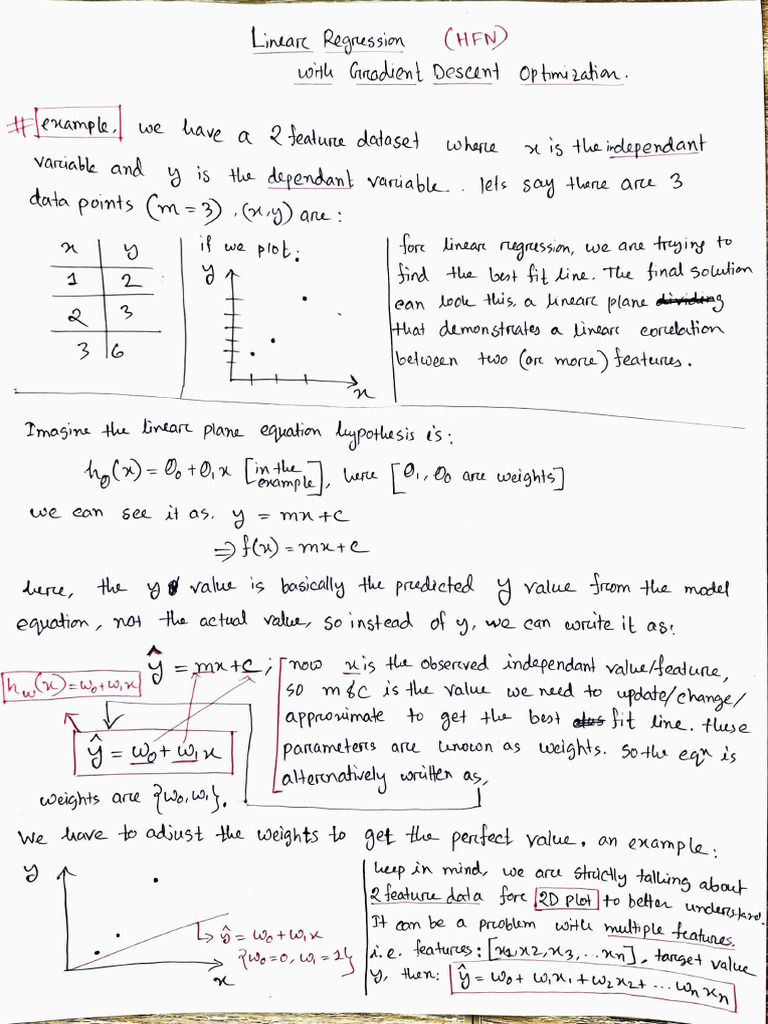 Linear Regression (HFN)
with Gradient Descent Optimization.
# example, we have a 2 feature dataset where x is the independant
variable and y is the dependant variable. lets say there are 3
data points (m = 3). (x,y) are:
x y
1 2
2 3
3 6
if we plot:
y
x
for linear regression, we are trying to
find the best fit line. The final solution
can look this, a linear plane dividing
that demonstrates a linear correlation
between two (or more) features.
Imagine the linear plane equation hypothesis is:
hθ(x) = θ0 + θ1x [in the example], here [θ1, θ0 are weights]
we can see it as, y = mx + c
⇒ f(x) = mx + c
here, the y value is basically the predicted y value from the model
equation, not the actual value, so instead of y, we can write it as:
ŷ = mx + c;
hw(x) = w0 + w1x
ŷ = w0 + w1x
weights are {w0, w1}.
now x is the observed independant value/feature,
so m & c is the value we need to update/change/
approximate to get the best fit line. these
parameters are known as weights. So the eqn is
alternatively written as,
We have to adjust the weights to get the perfect value, an example:
y
x
ŷ = w0 + w1x
{w0 = 0, w1 = 1}
keep in mind, we are strictly talking about
2 feature data for 2D plot to better understand.
It can be a problem with multiple features.
i.e. features: [x1, x2, x3, ... xn], target value
y, then: ŷ = w0 + w1x1 + w2x2 + ... wnxn